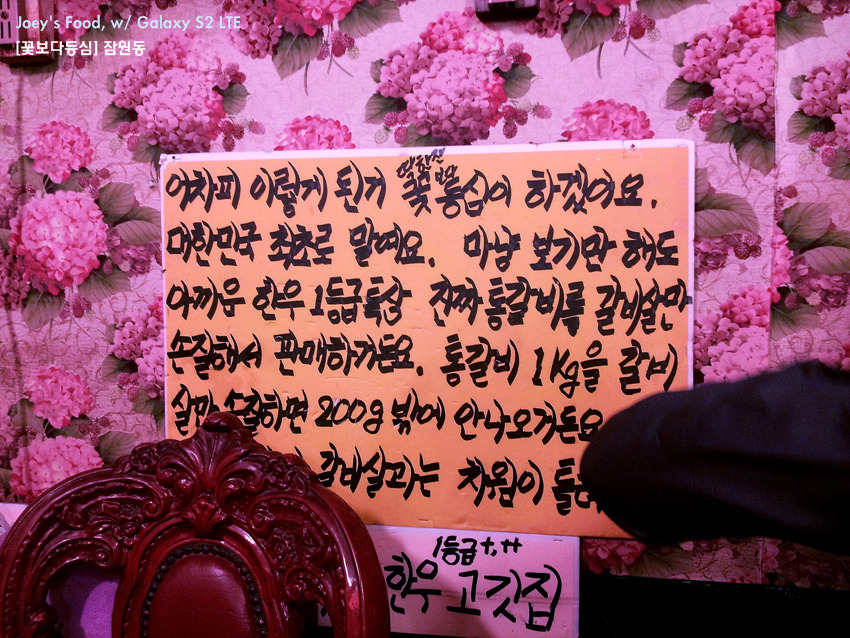 Joey's Food, w/ Galaxy S2 LTE
[꽃보다등심] 잠원동
어차피 이렇게 된거 꽃보다 등심이 하겠어요.
대한민국 최초로 말예요. 마냥 보기만 해도
아까운 한우 1등급특상 진짜 통갈비를 갈비살만
손질해서 판매하거든요. 통갈비 1Kg을 갈비
살만 손질하면 200g 밖에 안나오거든요
갈비살과는 차원이
1등급 +,++
한우 고깃집